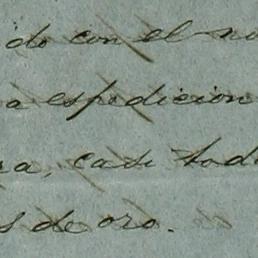 ido con el no
a espedicion
ra, casi tod
s de oro.